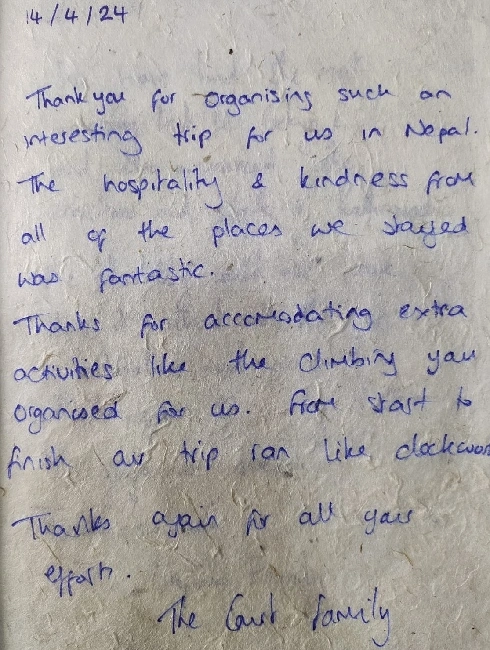 14/4/24
Thank you for organising such an
interesting trip for us in Nepal.
The hospitality & kindness from
all of the places we stayed
was fantastic.
Thanks for accomodating extra
activities like the climbing you
organised for us. From start to
finish our trip ran like clockwor
Thanks again for all your
effort.
The Family